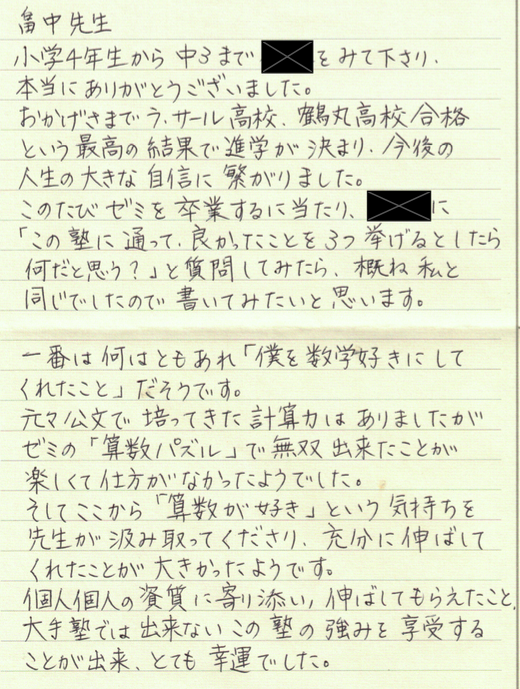 畠中先生
小学4年生から 中3まで をみて下さり、
本当にありがとうございました。
おかげさまで ラ・サール高校、鶴丸高校合格
という最高の結果で進学が決まり、今後の
人生の大きな自信に繋がりました。
このたび ゼミを卒業するに当たり、 に
「この塾に通って、良かったことを3つ挙げるとしたら
何だと思う?」と質問してみたら、概ね私と
同じでしたので書いてみたいと思います。
一番は何はともあれ「僕を数学好きにして
くれたこと」だそうです。
元々公文で培ってきた計算力はありましたが
ゼミの「算数パズル」で無双出来たことが
楽しくて仕方がなかったようでした。
そしてここから「算数が好き」という気持ちを
先生が汲み取ってくださり、充分に伸ばして
くれたことが大きかったようです。
個人個人の資質に寄り添い、伸ばしてもらえたこと、
大手塾では出来ないこの塾の強みを享受する
ことが出来、とても幸運でした。